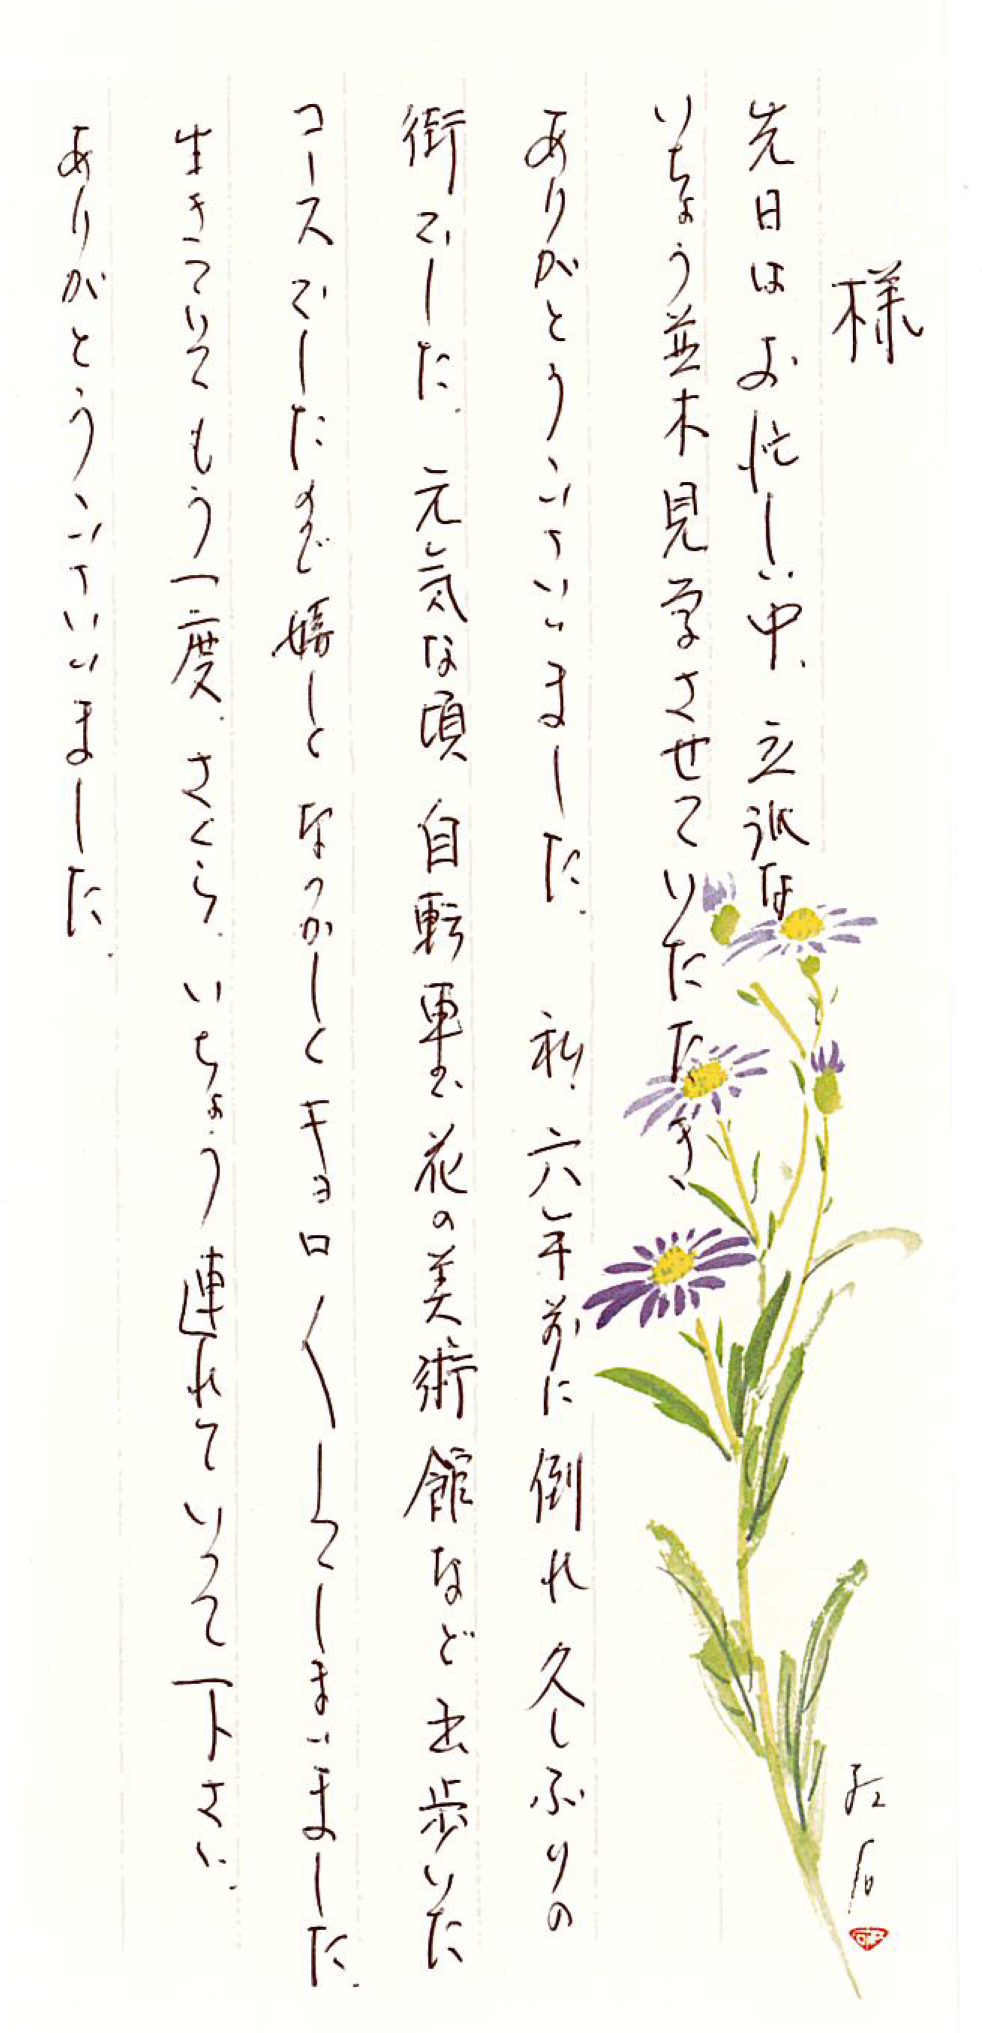 様
先日はお忙しい中、立派な
いちょう並木見学させていただき、
ありがとうございました。 私、六年前に倒れ久しぶりの
街でした。元気な頃 自転車で 花の美術館など出歩いた
コースでしたので嬉しく なつかしく キョロ〱してしまいました。
生きていてもう一度、さくら、いちょう 連れていって下さい。
ありがとうございました。